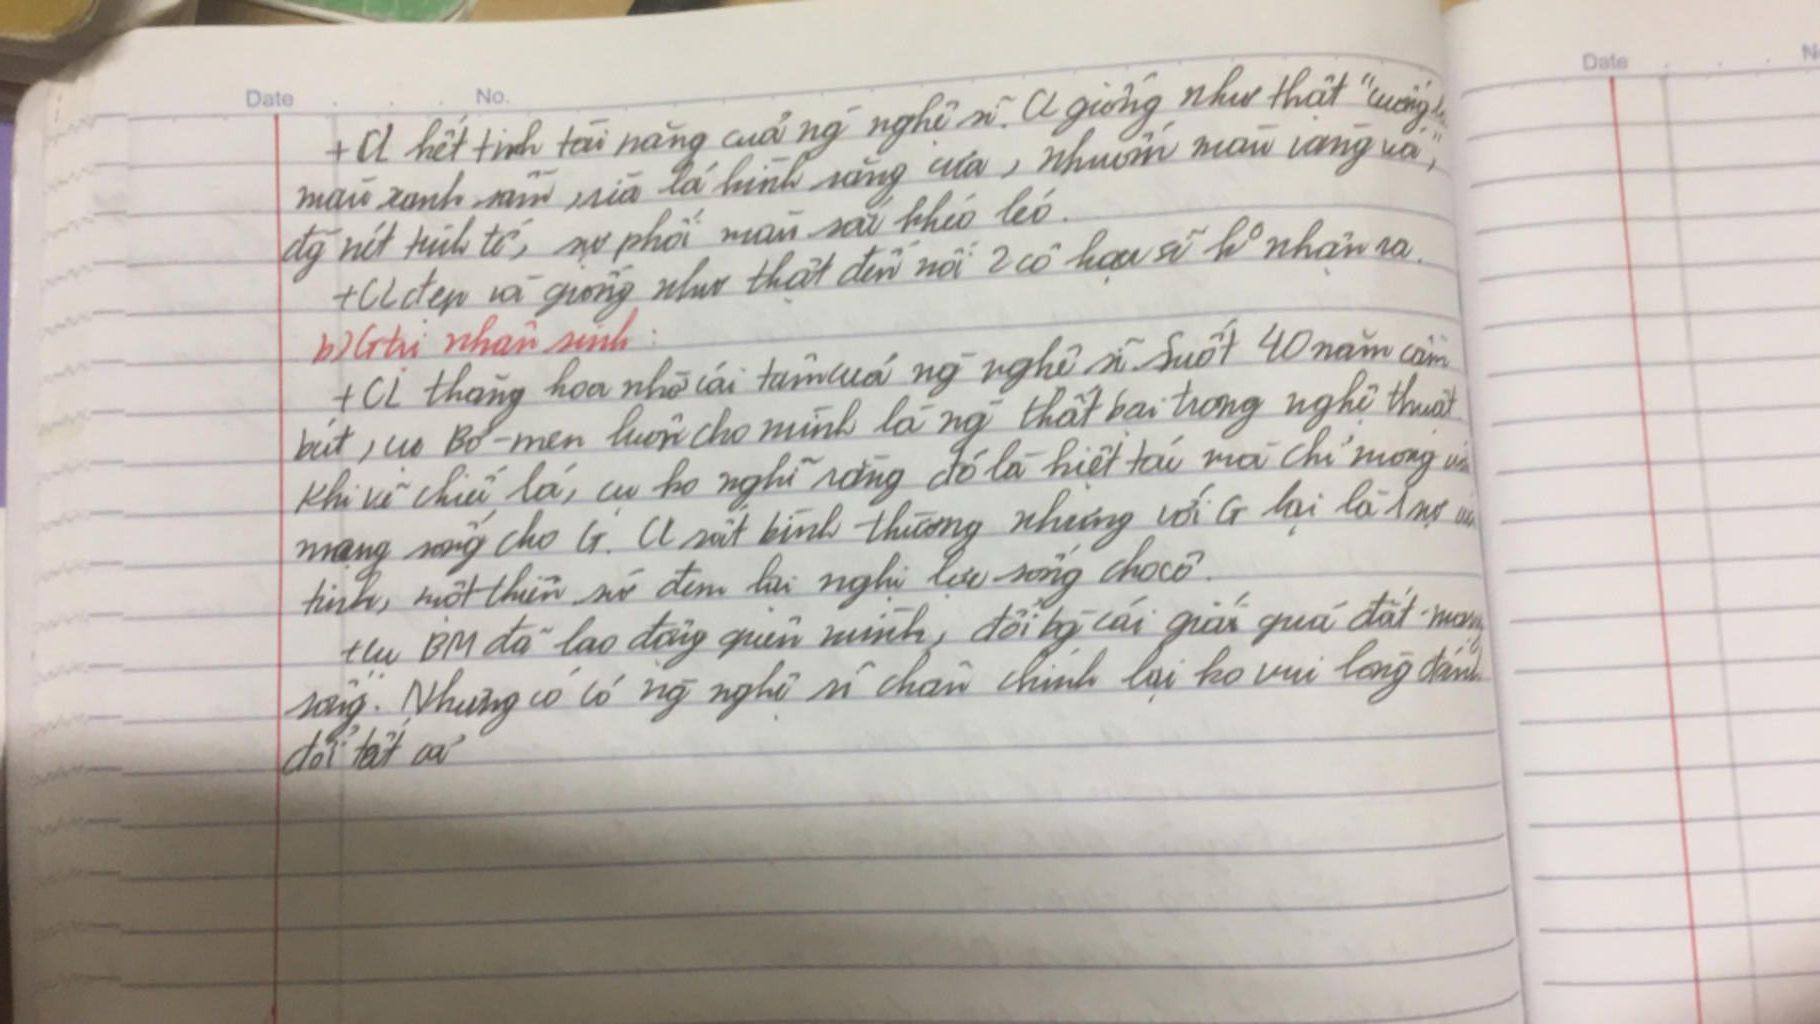 Date No.
+ CL kết tinh tài năng của ng nghệ sĩ. CL giống như thật "cuống
màu xanh sẫm, rìa lá hình răng cưa, nhuốm màu vàng úa",
đg nét tinh tế, sự phối màu sắc khéo léo.
+ CL đẹp và giống như thật đến nỗi 2 cô hoạ sĩ ko nhận ra.
b) Gtrị nhân sinh:
+ CL thăng hoa nhờ cái tâm của ng nghệ sĩ. Suốt 40 năm cầm
bút, cụ Bơ-men luôn cho mình là ng thất bại trong nghệ thuật.
Khi vẽ chiếc lá, cụ ko nghĩ rằng đó là kiệt tác mà chỉ mong
mạng sống cho G. CL rất bình thường nhưng với G lại là 1 sự
tinh, một thiên sứ đem lại nghị lực sống cho cô.
+ Cụ BM đã lao động quên mình, đổi bg cái giá quá đắt - mạng
sống. Nhưng có có ng nghệ sĩ chân chính lại ko vui lòng đánh
đổi tất cả
Date